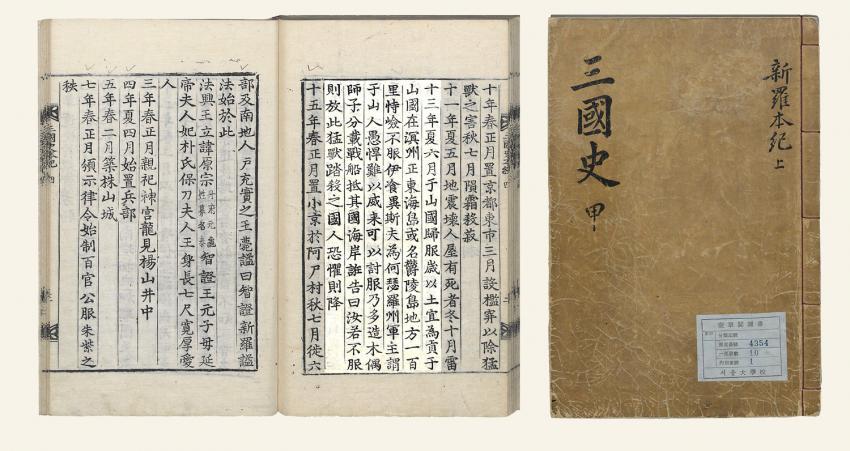 十年春正月置京都東市三月設檻穽以除猛
獸之害秋七月隕霜殺菽
十一年夏五月地震壞人屋有死者冬十月雷
十三年夏六月于山國歸服歲以土宜為貢于
山國在溟州正東海島或名欝陵島地方一百
里恃嶮不服伊飡異斯夫為何瑟羅州軍主謂
于山人愚悍難以威来可以計服乃多造木偶
師子分載戰舡抵其國海岸誑告曰汝若不服
則放此猛獸踏殺之國人恐懼則降
十五年春正月置小京於阿尸村秋七月徙六
部及南地人戶充實之王薨謚曰智證新羅謚
法始於此
法興王立諱原宗 智證王元子母延
帝夫人妃朴氏保刀夫人王身長七尺寬厚愛
人
三年春正月親祀神宮龍見楊山井中
四年夏四月始置兵部
五年春二月築株山城
七年春正月頒示律令始制百官公服朱紫之
秩
新羅本紀 上
三國史 甲
4354
10
1
서울大學校